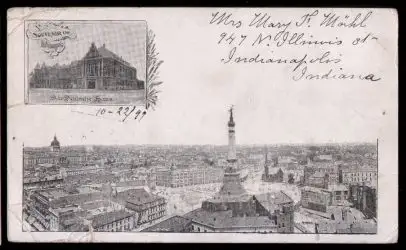 Mrs Mary F. Möhl
947 N. Illinois st
Indianapolis
Indiana
Das Deutsche Haus
10-22/99